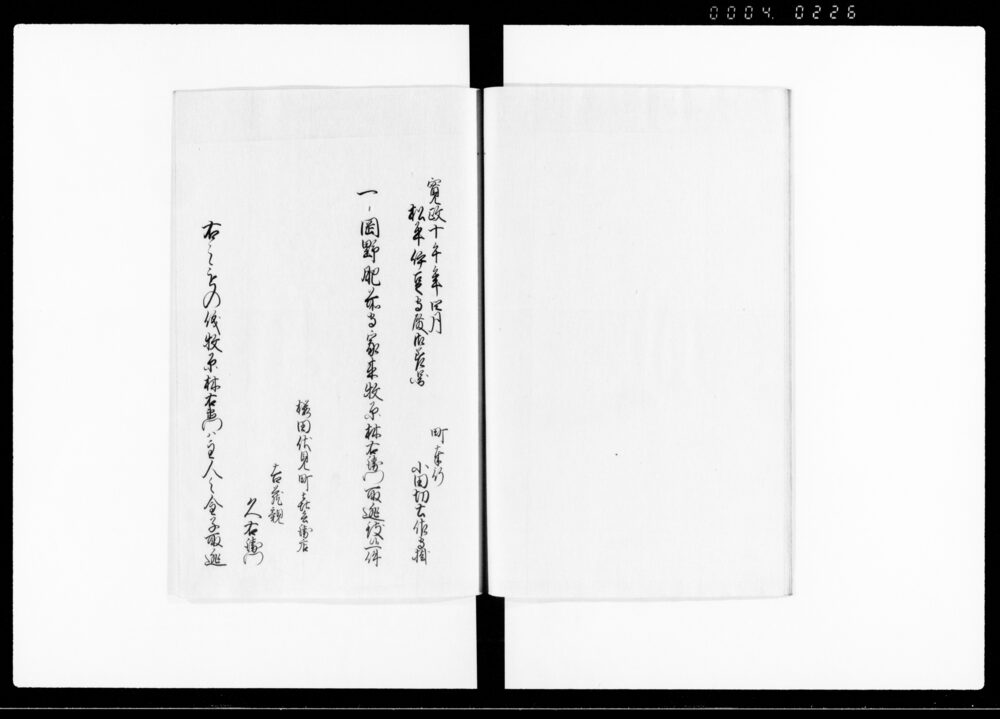 0004. 0226
寛政十午年四月
松平伊豆守殿御差図
町奉行
小田切土佐守掛
一、岡野肥前守家来牧原林右衛門取逃致候一件
桜田伏見町喜兵衛店
吉蔵親
久右衛門
右之もの儀牧原林右衛門ハ主人之金子取逃